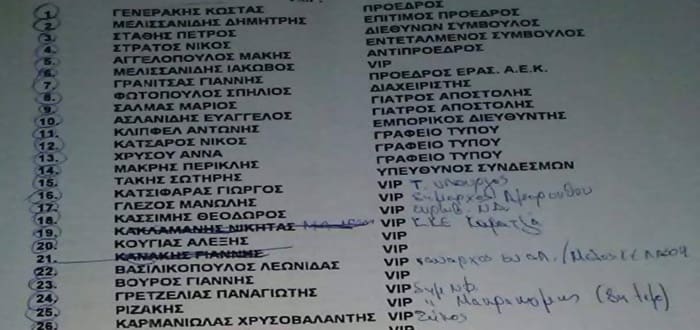 1. ΓΕΝΕΡΑΚΗΣ ΚΩΣΤΑΣ ΠΡΟΕΔΡΟΣ
2. ΜΕΛΙΣΣΑΝΙΔΗΣ ΔΗΜΗΤΡΗΣ ΕΠΙΤΙΜΟΣ ΠΡΟΕΔΡΟΣ
3. ΣΤΑΘΗΣ ΠΕΤΡΟΣ ΔΙΕΘΝΩΝ ΣΥΜΒΟΥΛΟΣ
4. ΣΤΡΑΤΟΣ ΝΙΚΟΣ ΕΝΤΕΤΑΛΜΕΝΟΣ ΣΥΜΒΟΥΛΟΣ
5. ΑΓΓΕΛΟΠΟΥΛΟΣ ΜΑΚΗΣ ΑΝΤΙΠΡΟΕΔΡΟΣ
6. ΜΕΛΙΣΣΑΝΙΔΗΣ ΙΑΚΩΒΟΣ VIP
7. ΓΡΑΝΙΤΣΑΣ ΓΙΑΝΝΗΣ ΠΡΟΕΔΡΟΣ ΕΡΑΣ. Α.Ε.Κ.
8. ΦΩΤΟΠΟΥΛΟΣ ΣΠΗΛΙΟΣ ΔΙΑΧΕΙΡΙΣΤΗΣ
9. ΣΑΛΜΑΣ ΜΑΡΙΟΣ ΓΙΑΤΡΟΣ ΑΠΟΣΤΟΛΗΣ
10. ΑΣΛΑΝΙΔΗΣ ΕΥΑΓΓΕΛΟΣ ΓΙΑΤΡΟΣ ΑΠΟΣΤΟΛΗΣ
11. ΚΛΙΠΦΕΛ ΑΝΤΩΝΗΣ ΕΜΠΟΡΙΚΟΣ ΔΙΕΥΘΥΝΤΗΣ
12. ΚΑΤΣΑΡΟΣ ΝΙΚΟΣ ΓΡΑΦΕΙΟ ΤΥΠΟΥ
13. ΧΡΥΣΟΥ ΑΝΝΑ ΓΡΑΦΕΙΟ ΤΥΠΟΥ
14. ΜΑΚΡΗΣ ΠΕΡΙΚΛΗΣ ΓΡΑΦΕΙΟ ΤΥΠΟΥ
15. ΤΑΚΗΣ ΣΩΤΗΡΗΣ ΥΠΕΥΘΥΝΟΣ ΣΥΝΔΕΣΜΩΝ
16. ΚΑΤΣΙΦΑΡΑΣ ΓΙΩΡΓΟΣ VIP Τ. υπουργος
17. ΓΛΕΖΟΣ ΜΑΝΩΛΗΣ VIP
18. ΚΑΣΣΙΜΗΣ ΘΕΟΔΩΡΟΣ VIP ΝΔ.
19. ΚΑΚΛΑΜΑΝΗΣ ΝΙΚΗΤΑΣ VIP
20. ΚΟΥΓΙΑΣ ΑΛΕΞΗΣ VIP
21. ΚΑΝΑΚΗΣ ΓΙΑΝΝΗΣ VIP
22. ΒΑΣΙΛΙΚΟΠΟΥΛΟΣ ΛΕΩΝΙΔΑΣ VIP
23. ΒΟΥΡΟΣ ΓΙΑΝΝΗΣ VIP
24. ΓΡΕΤΖΕΛΙΑΣ ΠΑΝΑΓΙΩΤΗΣ VIP
25. ΡΙΖΑΚΗΣ VIP
26. ΚΑΡΜΑΝΙΩΛΑΣ ΧΡΥΣΟΒΑΛΑΝΤΗΣ VIP